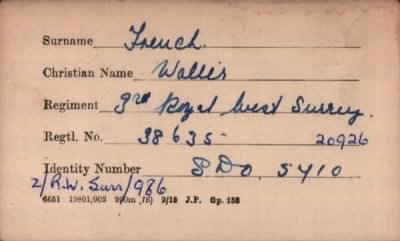 Surname French.
Christian Name Walter
Regiment 3rd Royal West Surrey.
Regtl. No. 38635 20926
Identity Number SDO, 5410
2/R.W. Surr/986
6651 19801/902 200m (15) 2/18 J.P. Gp. 158